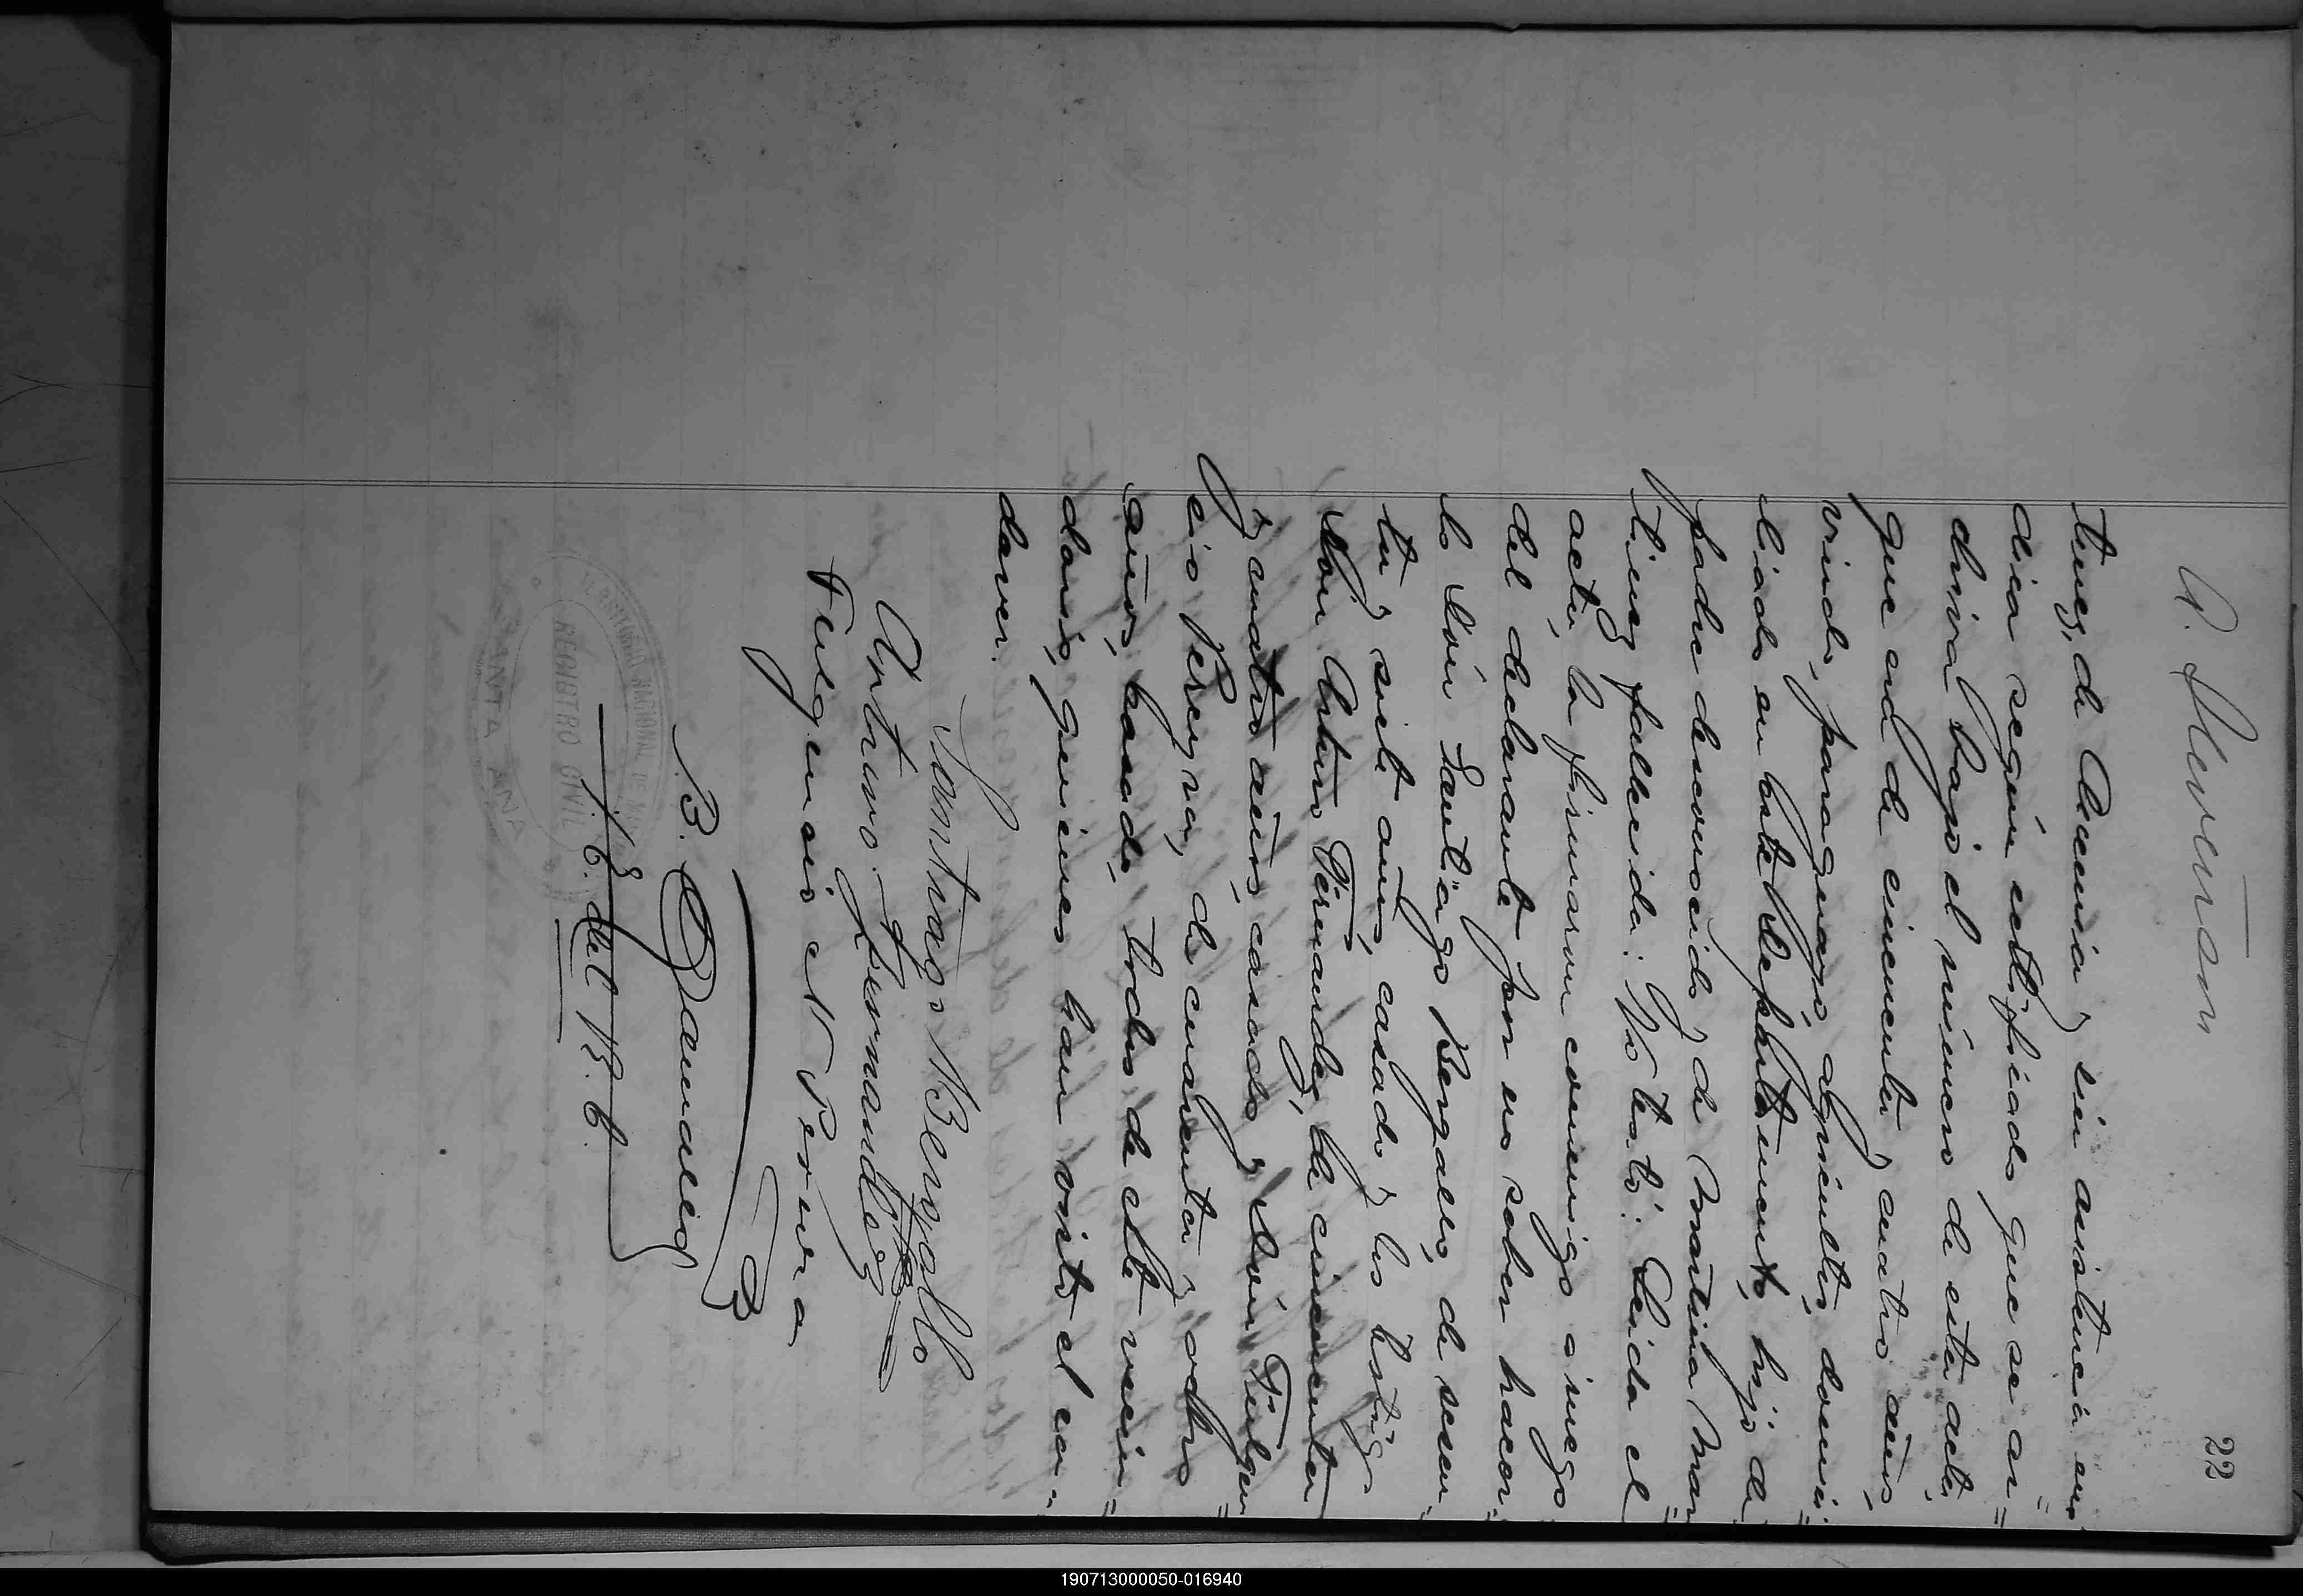 22
tinez, de Anemia y sin asistencia me-
dica según certificado que se ar-
chiva bajo el número de esta acta,
que era de cincuenta y cuatro años,
viudo, paraguayo, agricultor, domici-
liado en este Departamento, hijo de
padre desconocido y de Martina Mar-
tinez fallecida. Yo testó. Leida el
acta, la firmaron conmigo a ruego
del declarante por no saber hacer-
lo Don Santiago Bergallo, de sesen-
ta y siete años, casado y los testigos
Don Arturo Fernandez, de cincuenta
y cuatro años, casado y Don Fulgen-
cio Pereyra, de cuarenta y ocho
años, casado, todos de este vecin-
dario, quienes han visto el ca-
daver.
Santiago Bergallo
Arturo Fernandez
Fulgensio Perera
J. E. del R. C.
REGISTRO CIVIL
SANTA ANA
190713000050-016940